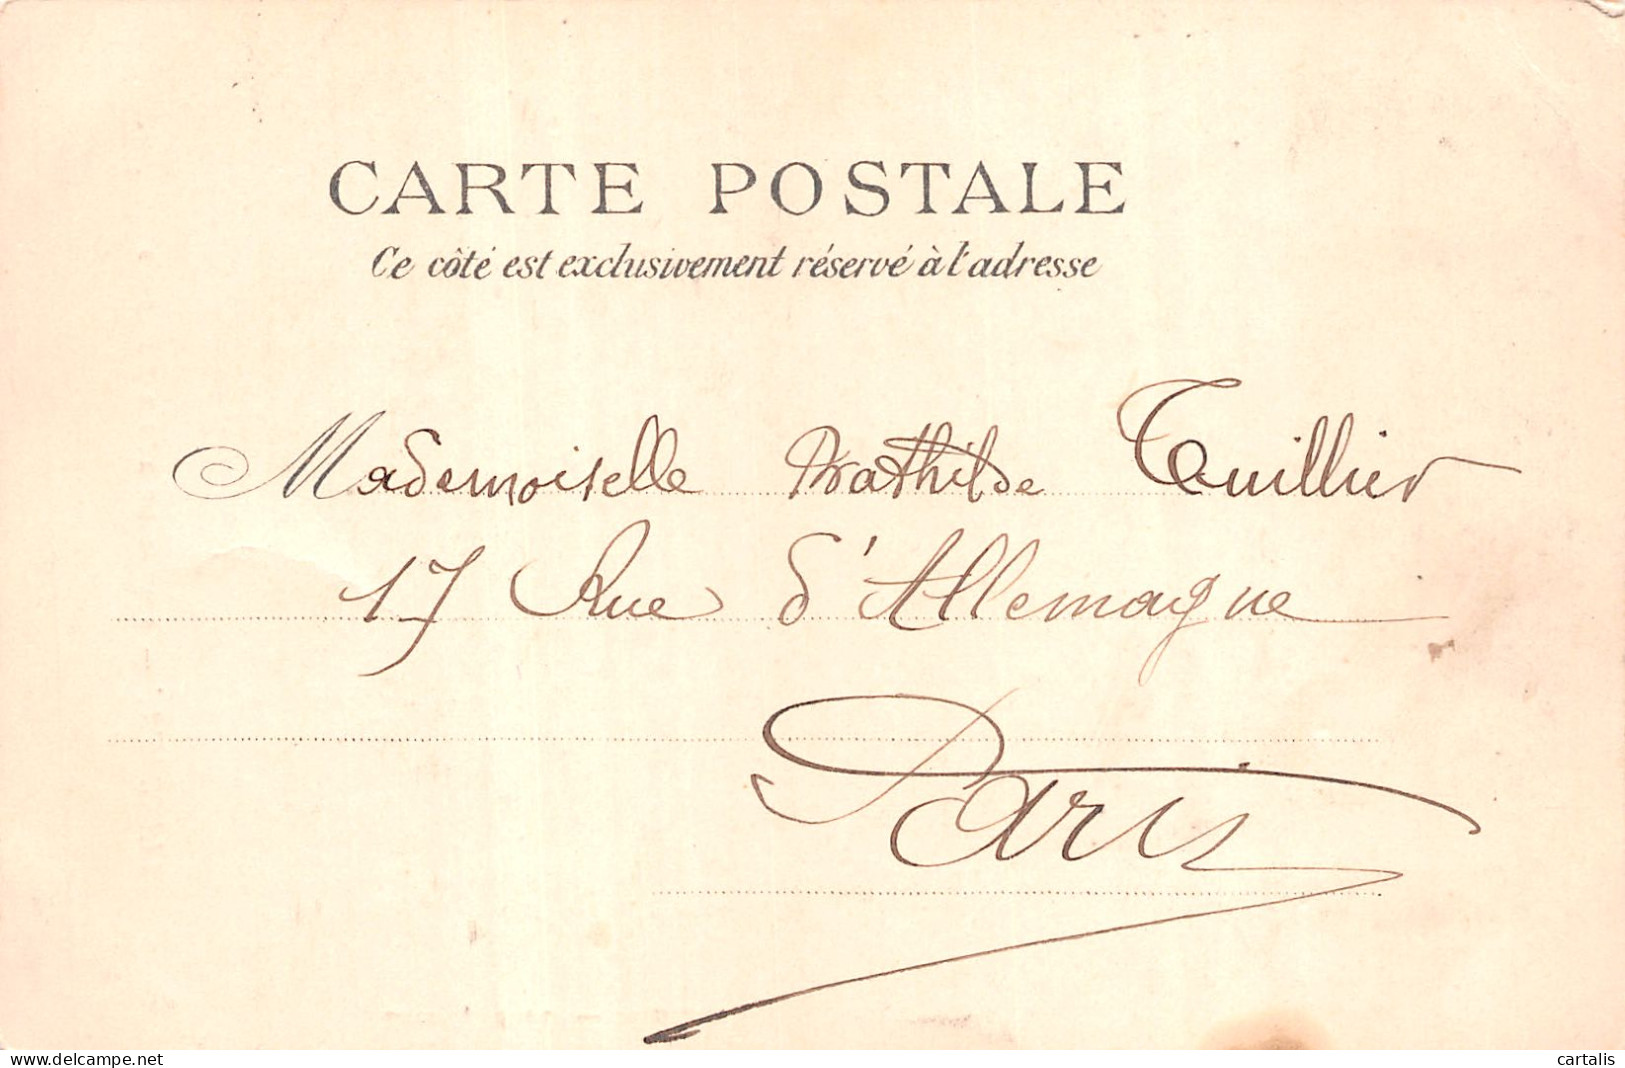 CARTE POSTALE
Ce côté est exclusivement réservé à l'adresse
Mademoiselle Mathilde Teuillier
17 Rue d'Allemagne
Paris
www.delcampe.net
cartalis